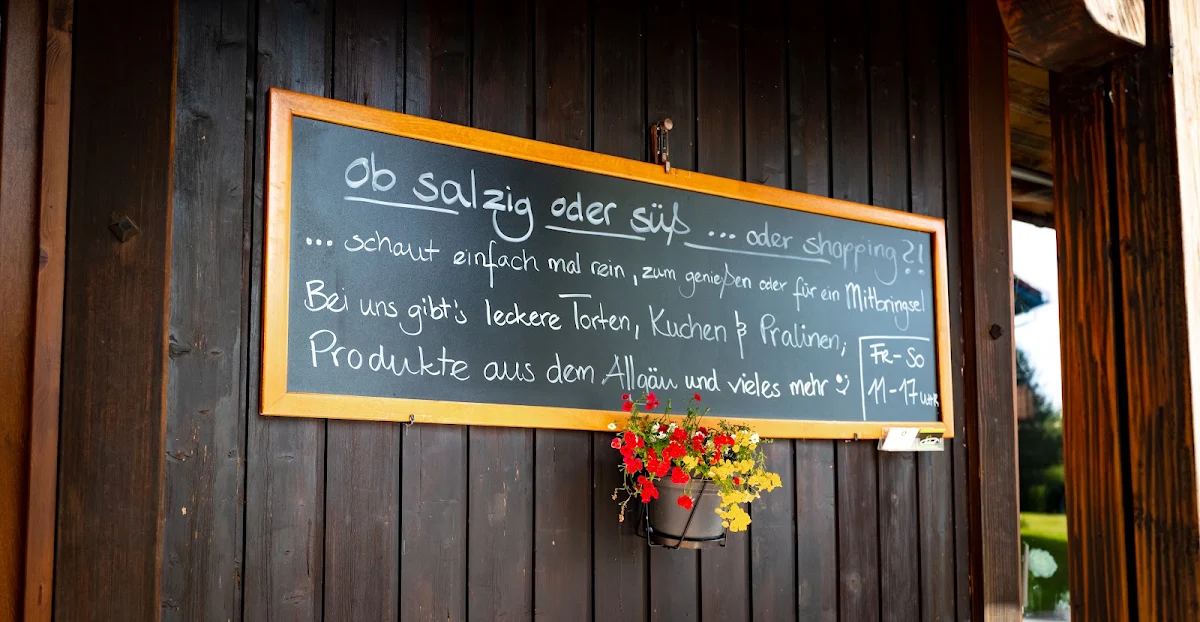 ob salzig oder süß ... oder shopping?!
... schaut einfach mal rein, zum genießen oder für ein Mitbringsel
Bei uns gibt's leckere Torten, Kuchen & Pralinen,
Produkte aus dem Allgäu und vieles mehr
FR - SO
11-17 UHR